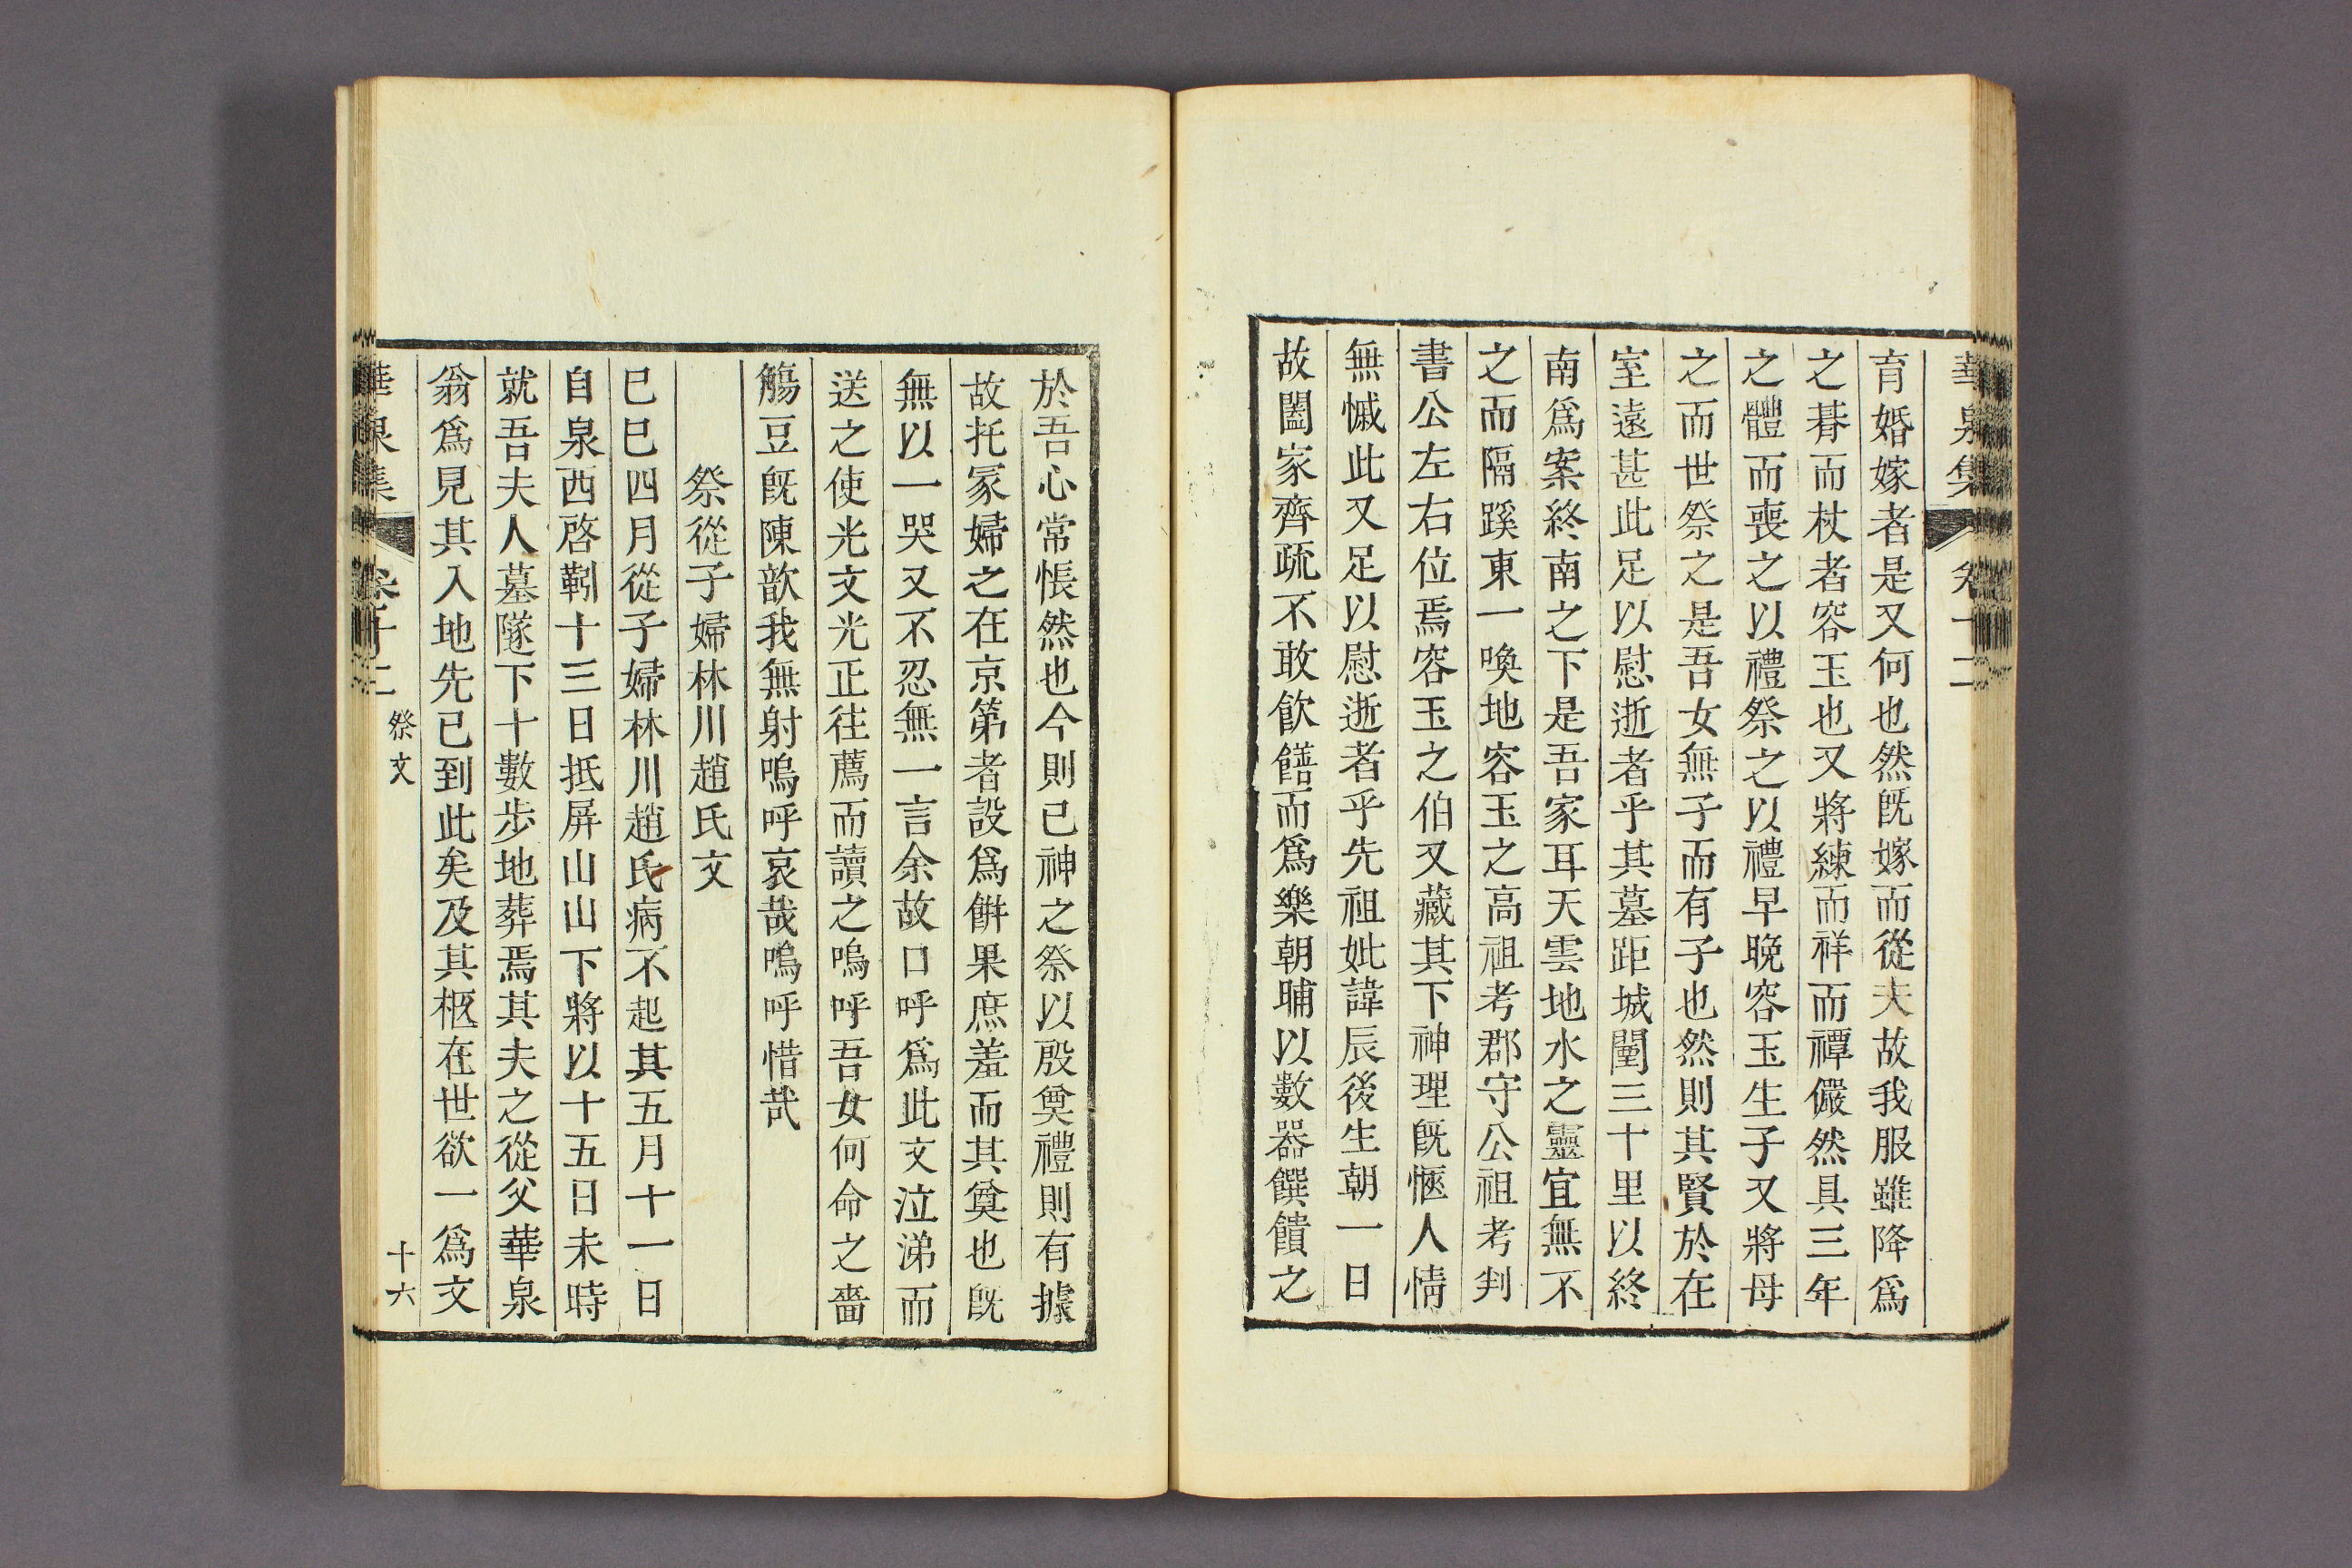 華泉集 卷十二
育婚嫁者是又何也然旣嫁而從夫故我服雖降爲
之朞而杖者容玉也又將練而祥而禫儼然具三年
之體而喪之以禮祭之以禮早晚容玉生子又將母
之而世祭之是吾女無子而有子也然則其賢於在
室遠甚此足以慰逝者乎其墓距城闉三十里以終
南爲案終南之下是吾家耳天雲地水之靈宜無不
之而隔蹊東一喚地容玉之高祖考郡守公祖考判
書公左右位焉容玉之伯又藏其下神理旣愜人情
無憾此又足以慰逝者乎先祖妣諱辰後生朝一日
故闔家齊疏不敢飮饍而爲樂朝晡以數器饌饋之
於吾心常悵然也今則已神之祭以殷奠禮則有據
故托冢婦之在京第者設爲餠果庶羞而其奠也旣
無以一哭又不忍無一言余故口呼爲此文泣涕而
送之使光文光正徃薦而讀之嗚呼吾女何命之嗇
觴豆旣陳歆我無射嗚呼哀哉嗚呼惜哉
祭從子婦林川趙氏文
巳巳四月從子婦林川趙氏病不起其五月十一日
自泉西啓靷十三日抵屏山山下將以十五日未時
就吾夫人墓隧下十數步地葬焉其夫之從父華泉
翁爲見其入地先已到此矣及其柩在世欲一爲文
華泉集 卷十二 祭文 十六